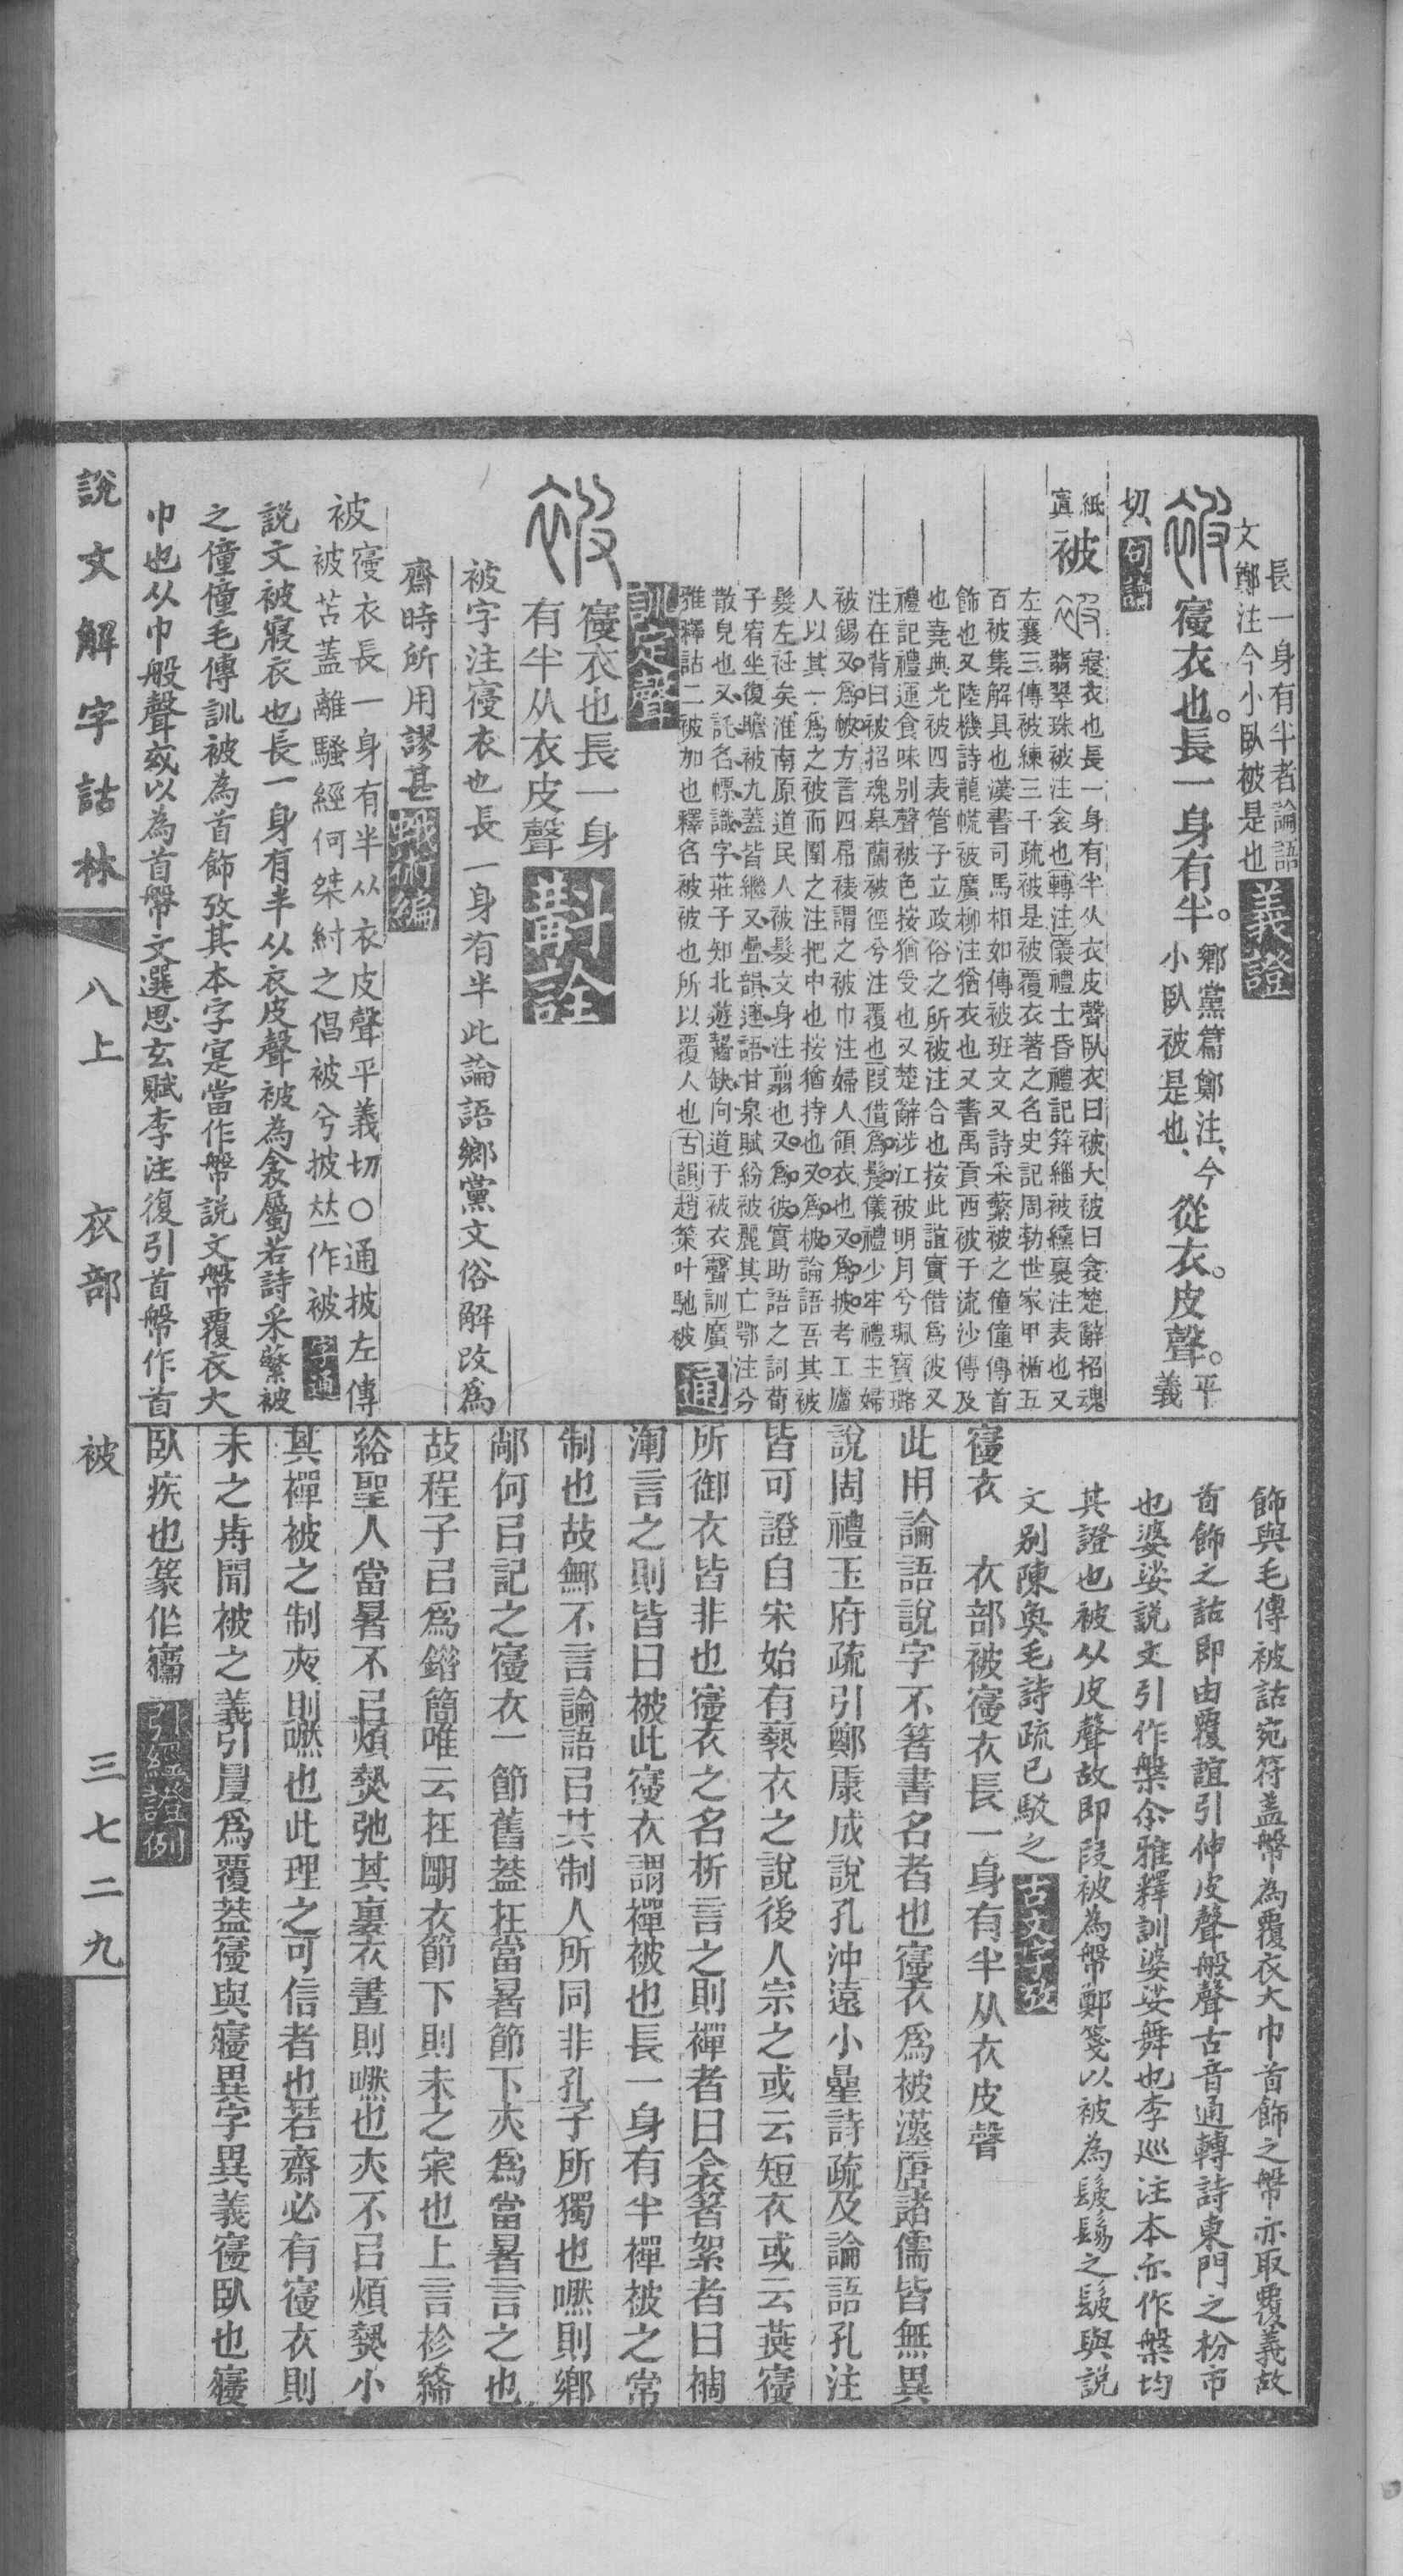 長一身有半者論語
文鄭注今小臥被是也義證
寑衣也。長一身有半。鄉黨篇鄭注、今
小臥被是也、從衣。皮聲。平義
切、句讀
紙
寘
被
寢衣也長一身有半从衣皮聲臥衣曰被大被曰衾楚辭招魂
翡翠珠被注衾也轉注儀禮士昏禮記笲緇被纁裏注表也又
左襄三傳被練三千疏被是被覆衣著之名史記周勃世家甲楯五
百被集解具也漢書司馬相如傳被班文又詩采蘩被之僮僮傳首
飾也又陸機詩龍㡆被廣柳注猶衣也又書禹貢西被于流沙傳及
也堯典光被四表管子立政俗之所被注合也按此誼實借為彼又
禮記禮運食味別聲被色按猶受也又楚辭涉江被明月兮珮寶璐
注在背曰被招魂皋蘭被徑兮注覆也叚借為髲儀禮少牢禮主婦
被錫又為帔方言四帍裱謂之被巾注婦人領衣也又為披考工廬
人以其一為之被而圍之注把中也按猶持也又為柀論語吾其被
髮左衽矣淮南原道民人被髮文身注翦也又為彼實助語之詞荀
子宥坐復瞻被九蓋皆繼又疊韻連語甘泉賦紛被麗其亡鄂注分
散皃也又託名幖識字莊子知北遊齧缺向道于被衣聲訓廣
雅釋詁二被加也釋名被被也所以覆人也古韻趙策叶馳破通
訓定聲
寑衣也長一身
有半从衣皮聲斠詮
被字注寑衣也長一身有半此論語鄉黨文俗解改為
齋時所用謬甚蛾術編
被寑衣長一身有半从衣皮聲平義切〇通披左傳
被苫蓋離騷經何桀紂之倡被兮披𠀤作被字通
說文被寢衣也長一身有半从衣皮聲被為衾屬若詩采蘩被
之僮僮毛傳訓被為首飾攷其本字寔當作幋說文幋覆衣大
巾也从巾般聲或以為首幋文選思玄賦李注復引首幋作首
飾與毛傳被詁宛符盖幋為覆衣大巾首飾之幋亦取覆義故
首飾之詁即由覆誼引伸皮聲般聲古音通轉詩東門之枌市
也婆娑說文引作槃尒雅釋訓婆娑舞也李巡注本亦作槃均
其證也被从皮聲故即叚被為幋鄭箋以被為髲鬄之髲與說
文別陳奐毛詩疏已駁之古文字攷
寑衣　衣部被寑衣長一身有半从衣皮聲
此用論語說字不箸書名者也寑衣為被漢唐諸儒皆無異
說周禮玉府疏引鄭康成說孔沖遠小曐詩疏及論語孔注
皆可證自宋始有褻衣之說後人宗之或云短衣或云燕寑
所御衣皆非也寑衣之名析言之則襌者曰衾箸絮者曰裯
渾言之則皆曰被此寑衣謂襌被也長一身有半襌被之常
制也故鄉不言論語㠯其制人所同非孔子所獨也嘫則鄉
鄗何㠯記之寑衣一節舊葢在當暑節下亦為當暑言之也
故程子㠯為錯簡唯云在朙衣節下則未之宷也上言袗絺
綌聖人當暑不㠯煩𤍽弛其裏衣晝則嘫也亦不㠯煩𤍽小
其襌被之制夾則嘫也此理之可信者也若齋必有寑衣則
未之歬聞被之義引𤲮為覆葢寑與寢異字異義寑臥也寢
臥疾也篆作𡪢引經證例
說文解字詁林　八上　衣部　被　三七二九